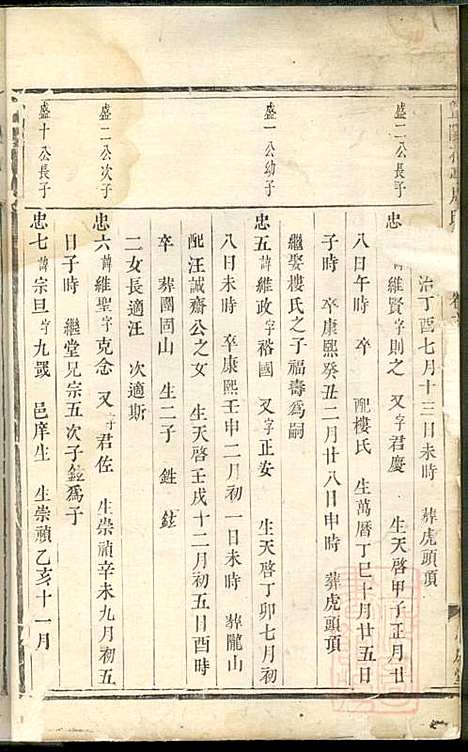 治丁酉七月十三日未時　葬虎頭頂
盛二公長子
忠　諱維賢字則之　又字君慶　生天啓甲子正月廿
八日午時　卒　配樓氏　生萬曆丁巳十月廿五日
子時　卒康熙癸丑二月廿八日申時　葬虎頭頂
繼娶樓氏之子福壽爲嗣
盛一公幼子
忠五諱維政字裕國　又字正安　生天啓丁卯七月初
八日未時　卒康熙壬申二月初一日未時　葬隴山
配汪誠齋公之女　生天啓壬戌十二月初五日酉時
卒　葬團固山　生二子　鉎　鉉
二女長適汪　次適斯
盛二公次子
忠六諱維聖字克念　又字君佐　生崇禎辛未九月初五
日子時　繼堂兄宗五次子鉉爲子
盛十公長子
忠七諱宗旦字九罭　邑庠生　生崇禎乙亥十一月